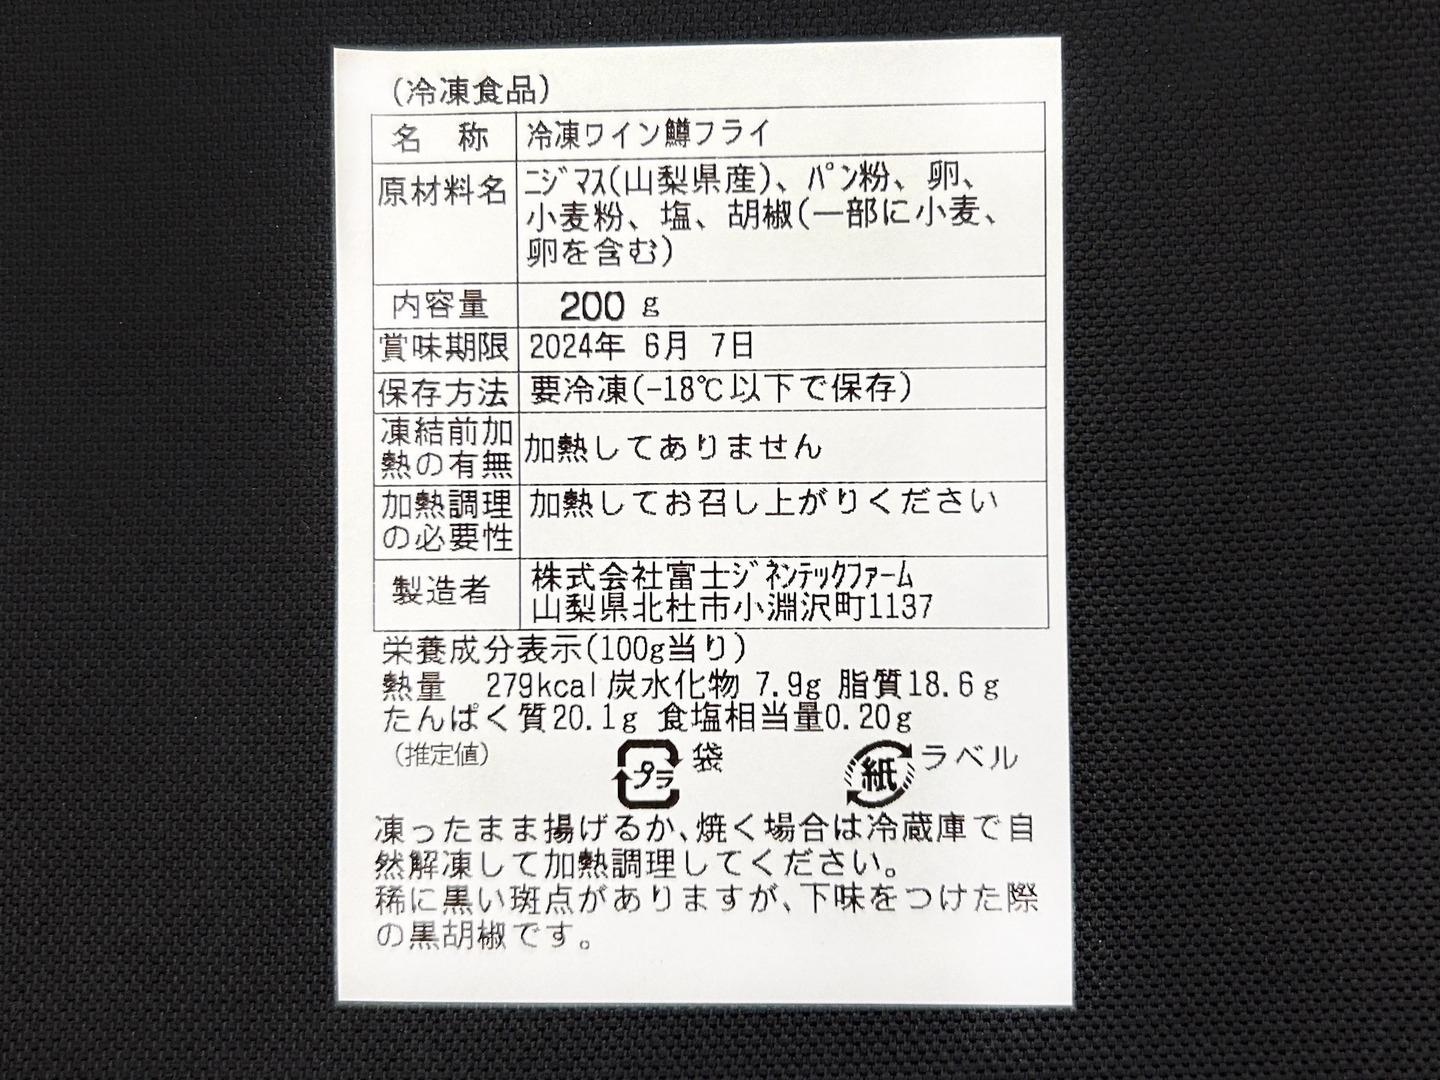 (冷凍食品)
名 称 冷凍ワイン鱒フライ
原材料名 ﾆｼﾞﾏｽ(山梨県産)、ﾊﾟﾝ粉、卵、
小麦粉、塩、胡椒(一部に小麦、
卵を含む)
内容量 200 g
賞味期限 2024年 6月 7日
保存方法 要冷凍(-18℃以下で保存)
凍結前加
熱の有無 加熱してありません
加熱調理
の必要性 加熱してお召し上がりください
製造者 株式会社富士ｼﾞﾈﾝﾃｯｸﾌｧｰﾑ
山梨県北杜市小淵沢町1137
栄養成分表示(100g当り)
熱量 279kcal 炭水化物 7.9g 脂質18.6g
たんぱく質20.1g 食塩相当量0.20g
(推定値) プラ 袋 紙 ラベル
凍ったまま揚げるか､焼く場合は冷蔵庫で自
然解凍して加熱調理してください。
稀に黒い斑点がありますが､下味をつけた際
の黒胡椒です。